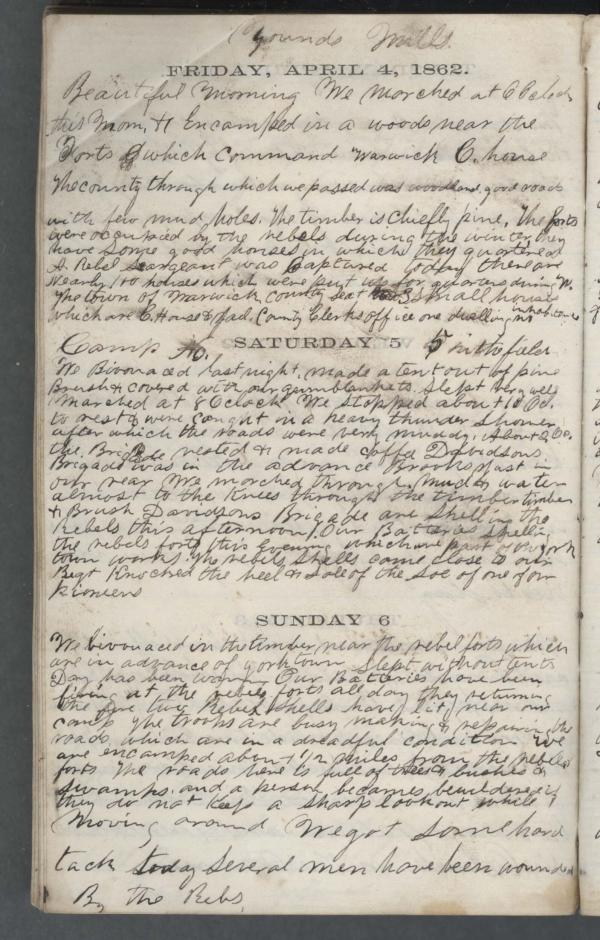 Youngs Mills.
FRIDAY, APRIL 4, 1862.
Beautiful Morning We Marched at 6 Oclock
this Morn, & Encamped in a woods near the
Forts which command Warwick C. house
The county through which we passed was woodland, good roads
with few mud holes. The timber is chiefly pine. The forts
were occupied by the rebels during the winter, they
have some good houses in which they quartered
A Rebel Seargeant was captured today there are
nearly 140 houses which were put up for quarters during W.
The town of Warwick county seat has 3 small houses
which are C. House & Jail. County Clerks office one dwelling inhabitants
Camp No. 5 in the field
SATURDAY 5
We Bivouaced last night. made a tent out of pine
Brush & covered with our gumblankets. Slept very well
Marched at 8 Oclock We stopped about 10 Oc.
to rest & were caught in a heavy thunder shower
after which the roads were very muddy. About 2 Oc.
the Brigade rested & made coffee Davidsons
Brigade was in the advance Brooks just in
our rear We marched through mud & water
almost to the knees through the timber timber
& Brush Davidsons Brigade are shelling the
Rebels this afternoon. Our Batteries shelling
the rebels forts this Evening which are part of the York
town works. The rebels shells came close to our
Regt Knocked the heel & sole of the soe of one of our
pioneers
SUNDAY 6
We bivouaced in the timber near the rebel forts which
are in advance of yorktown Slept without tents
Day has been warm Our Batteries have been
fireing at the rebels forts all day they returning
the fire two Rebel shells have lit near our
camp The troops are busy making & repairing the
roads which are in a dreadful condition We
are encamped about 1 1/2 miles from the rebels
forts The woods here is full of trees & bushes &
swamps. and a person becomes bewildered if
they do not keep a sharp lookout while
Moving around We got some hard
tack today Several men have been wounded
By the Rebs.